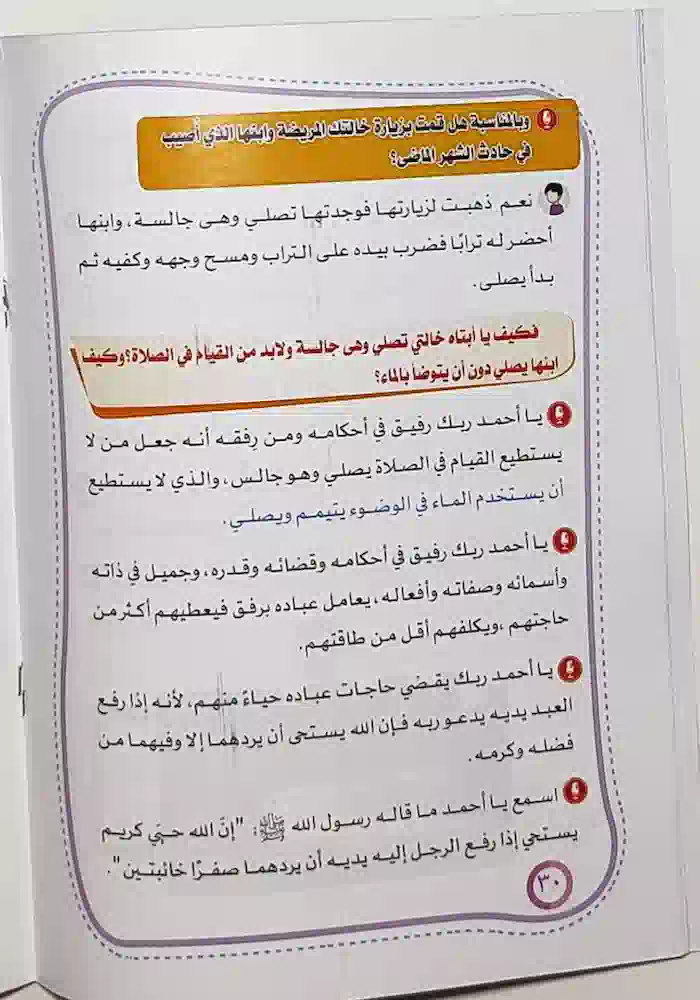 وبالمناسبة هل قمت بزيارة خالتك المريضة وابنها الذي أصيب
في حادث الشهر الماضى؟
نعم ذهبت لزيارتها فوجدتها تصلي وهى جالسة، وابنها
أحضر له ترابًا فضرب بيده على التراب ومسح وجهه وكفيه ثم
بدأ يصلى.
فكيف يا أبتاه خالتي تصلي وهى جالسة ولابد من القيام في الصلاة؟وكيف
ابنها يصلي دون أن يتوضأ بالماء؟
يا أحمد ربك رفيق في أحكامه ومن رِفقه أنه جعل من لا
يستطيع القيام في الصلاة يصلي وهو جالس، والذي لا يستطيع
أن يستخدم الماء في الوضوء يتيمم ويصلي.
يا أحمد ربك رفيق في أحكامه وقضائه وقدره، وجميل في ذاته
وأسمائه وصفاته وأفعاله، يعامل عباده برفق فيعطيهم أكثر من
حاجتهم ،ويكلفهم أقل من طاقتهم.
يا أحمد ربك يقضي حاجات عباده حياءً منهم، لأنه إذا رفع
العبد يديه يدعو ربه فإن الله يستحى أن يردهما إلا وفيهما من
فضله وكرمه.
اسمع يا أحمد ما قاله رسول الله ﷺ: "إنَّ الله حيَي كريم
يستحي إذا رفع الرجل إليه يديه أن يردهما صفرًا خائبتين".
٣٠